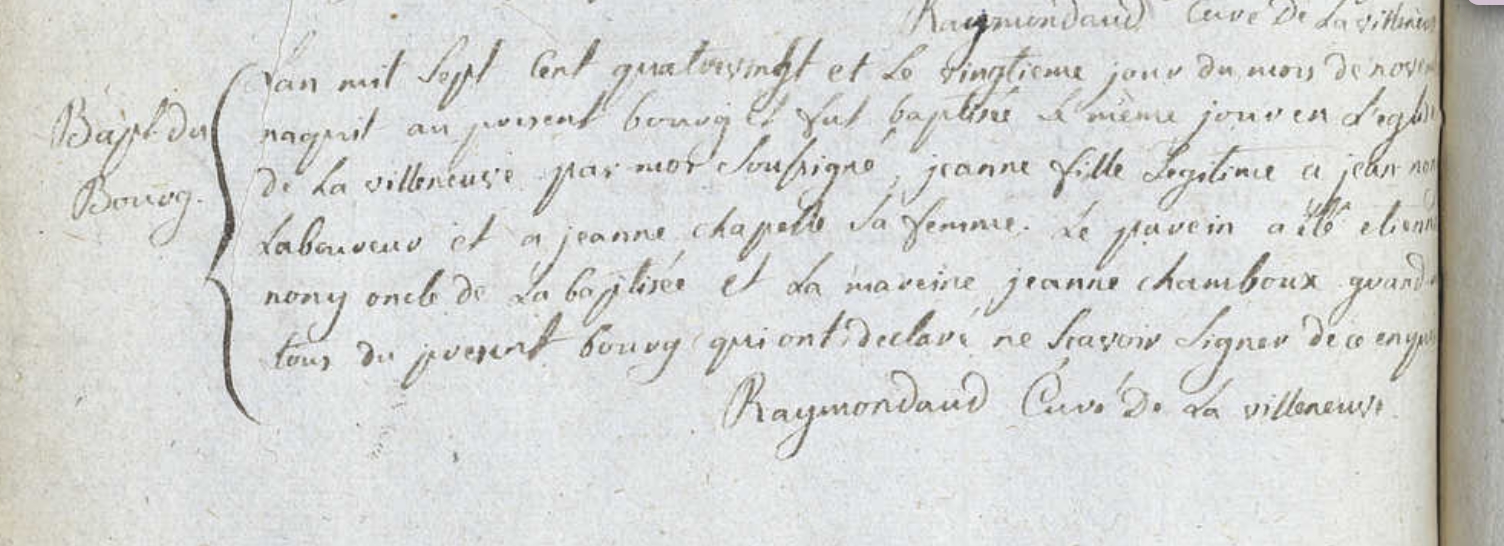 Raymondaud Curé De La villeneuv
Bapt. du
Bourg.
Lan mil Sept Cent quatrevinght et Le vingtieme jour du mois de novem
naquit au present bourg et fut baptisée le même jour en L'eglise
de La villeneuve par moi Soussigné, jeanne fille Legitime a jean nony
Laboureur et a jeanne chapelle Sa femme. Le parein a été etienne
nony oncle de La baptisée et La mareine jeanne chamboux grand
tous du present bourg qui ont declaré ne Scavoir Signer de ce enquis
Raymondaud Curé De La villeneuve.